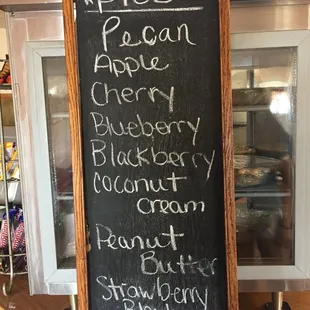 PIES
Pecan
Apple
Cherry
Blueberry
Blackberry
Coconut
Cream
Peanut
Butter
Strawberry